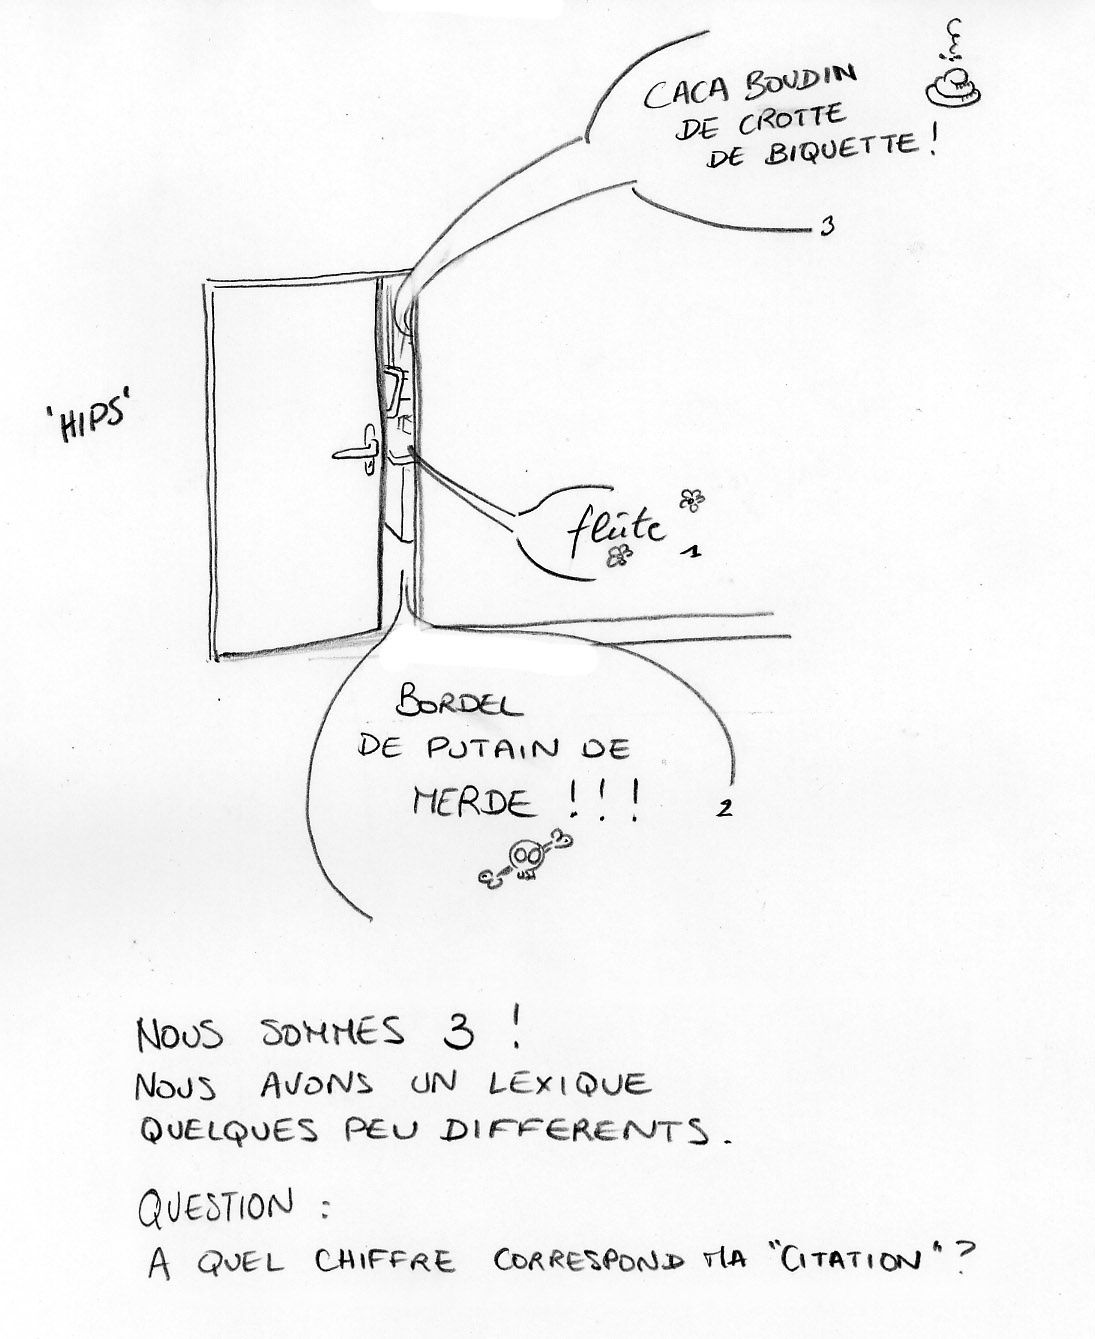 CACA BOUDIN
DE CROTTE
DE BIQUETTE !
3
'HIPS'
flûte
1
BORDEL
DE PUTAIN DE
MERDE !!!
2
NOUS SOMMES 3 !
NOUS AVONS UN LEXIQUE
QUELQUES PEU DIFFERENTS.
QUESTION :
A QUEL CHIFFRE CORRESPOND MA "CITATION" ?